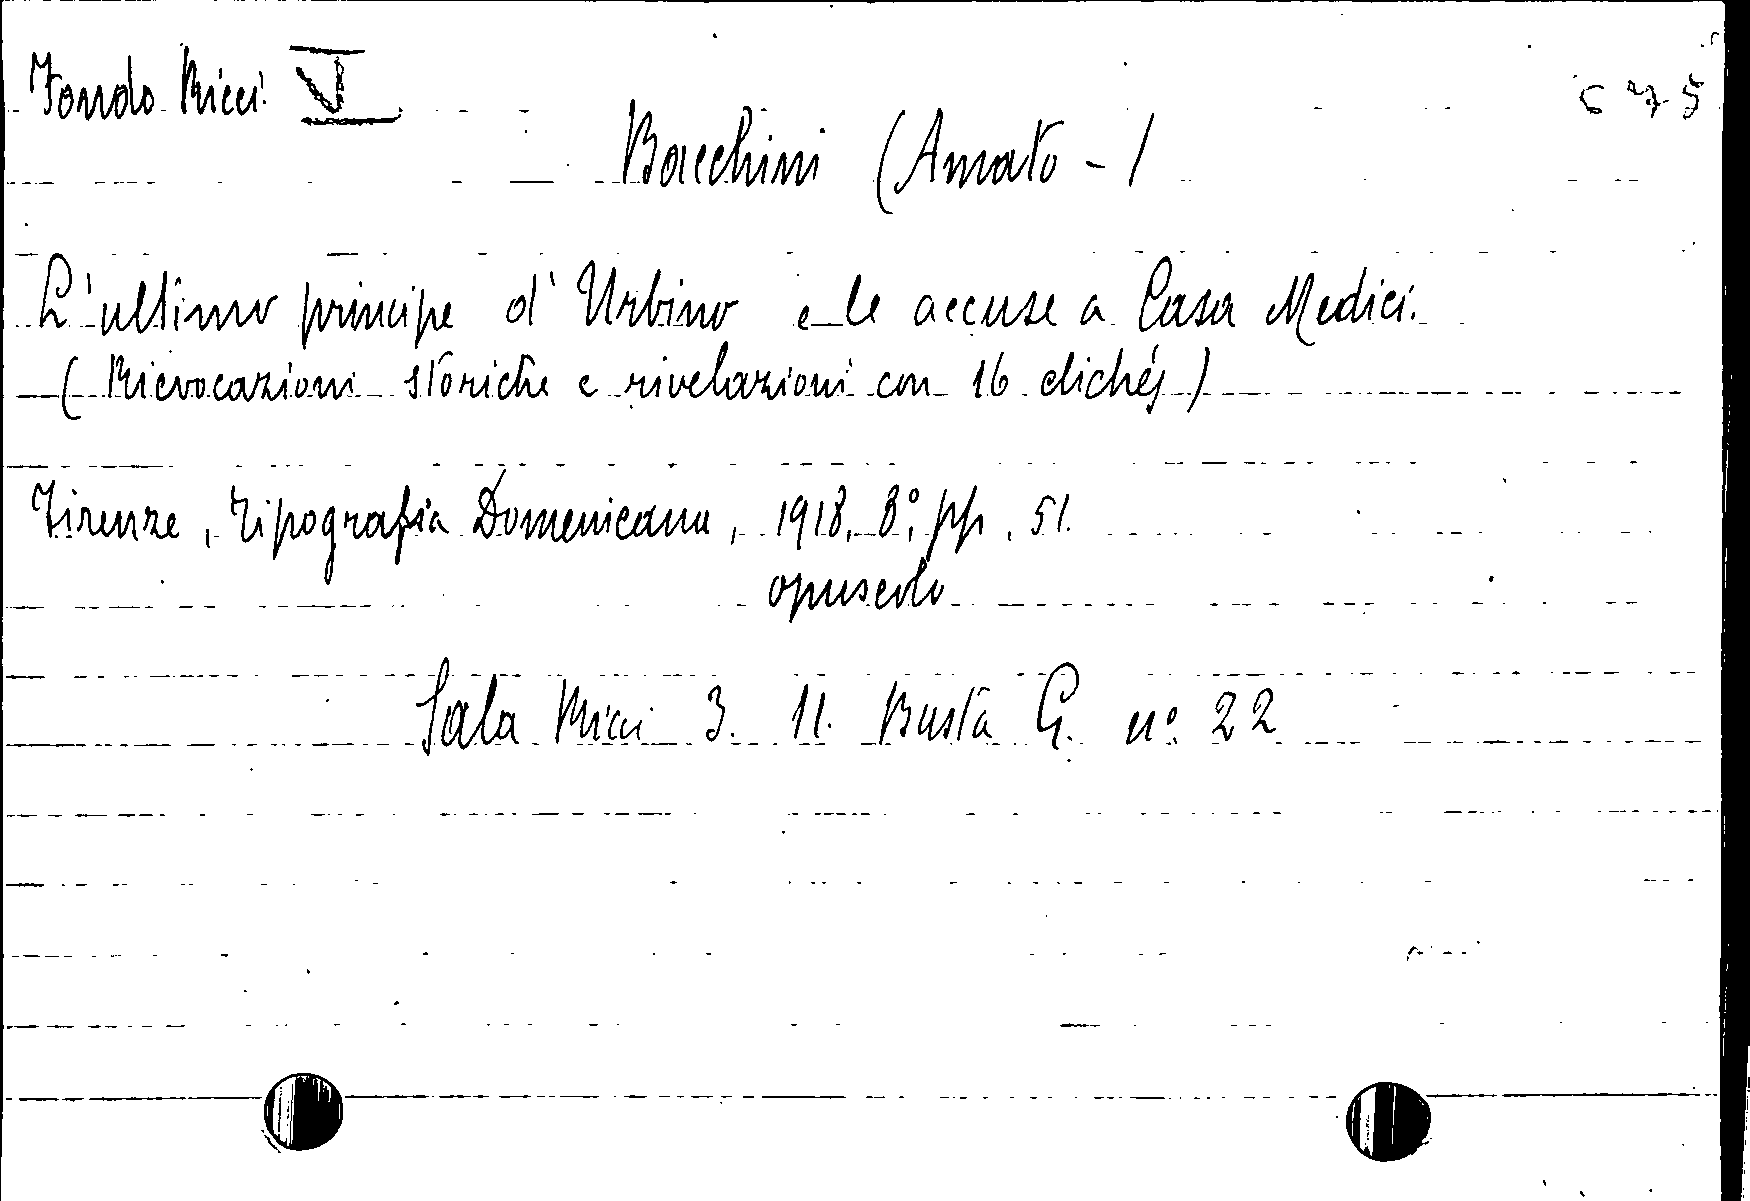 Fondo Ricci V
675
Bacchini (Amato - )
L'ultimo principe d'Urbino e le accuse a Casa Medici.
( Rievocazioni storiche e rivelazioni con 16 clichés )
Firenze, Tipografia Domenicana, 1918, 8°, pp. 51.
opuscolo
Sala Ricci 3. 11. Busta G. n° 22